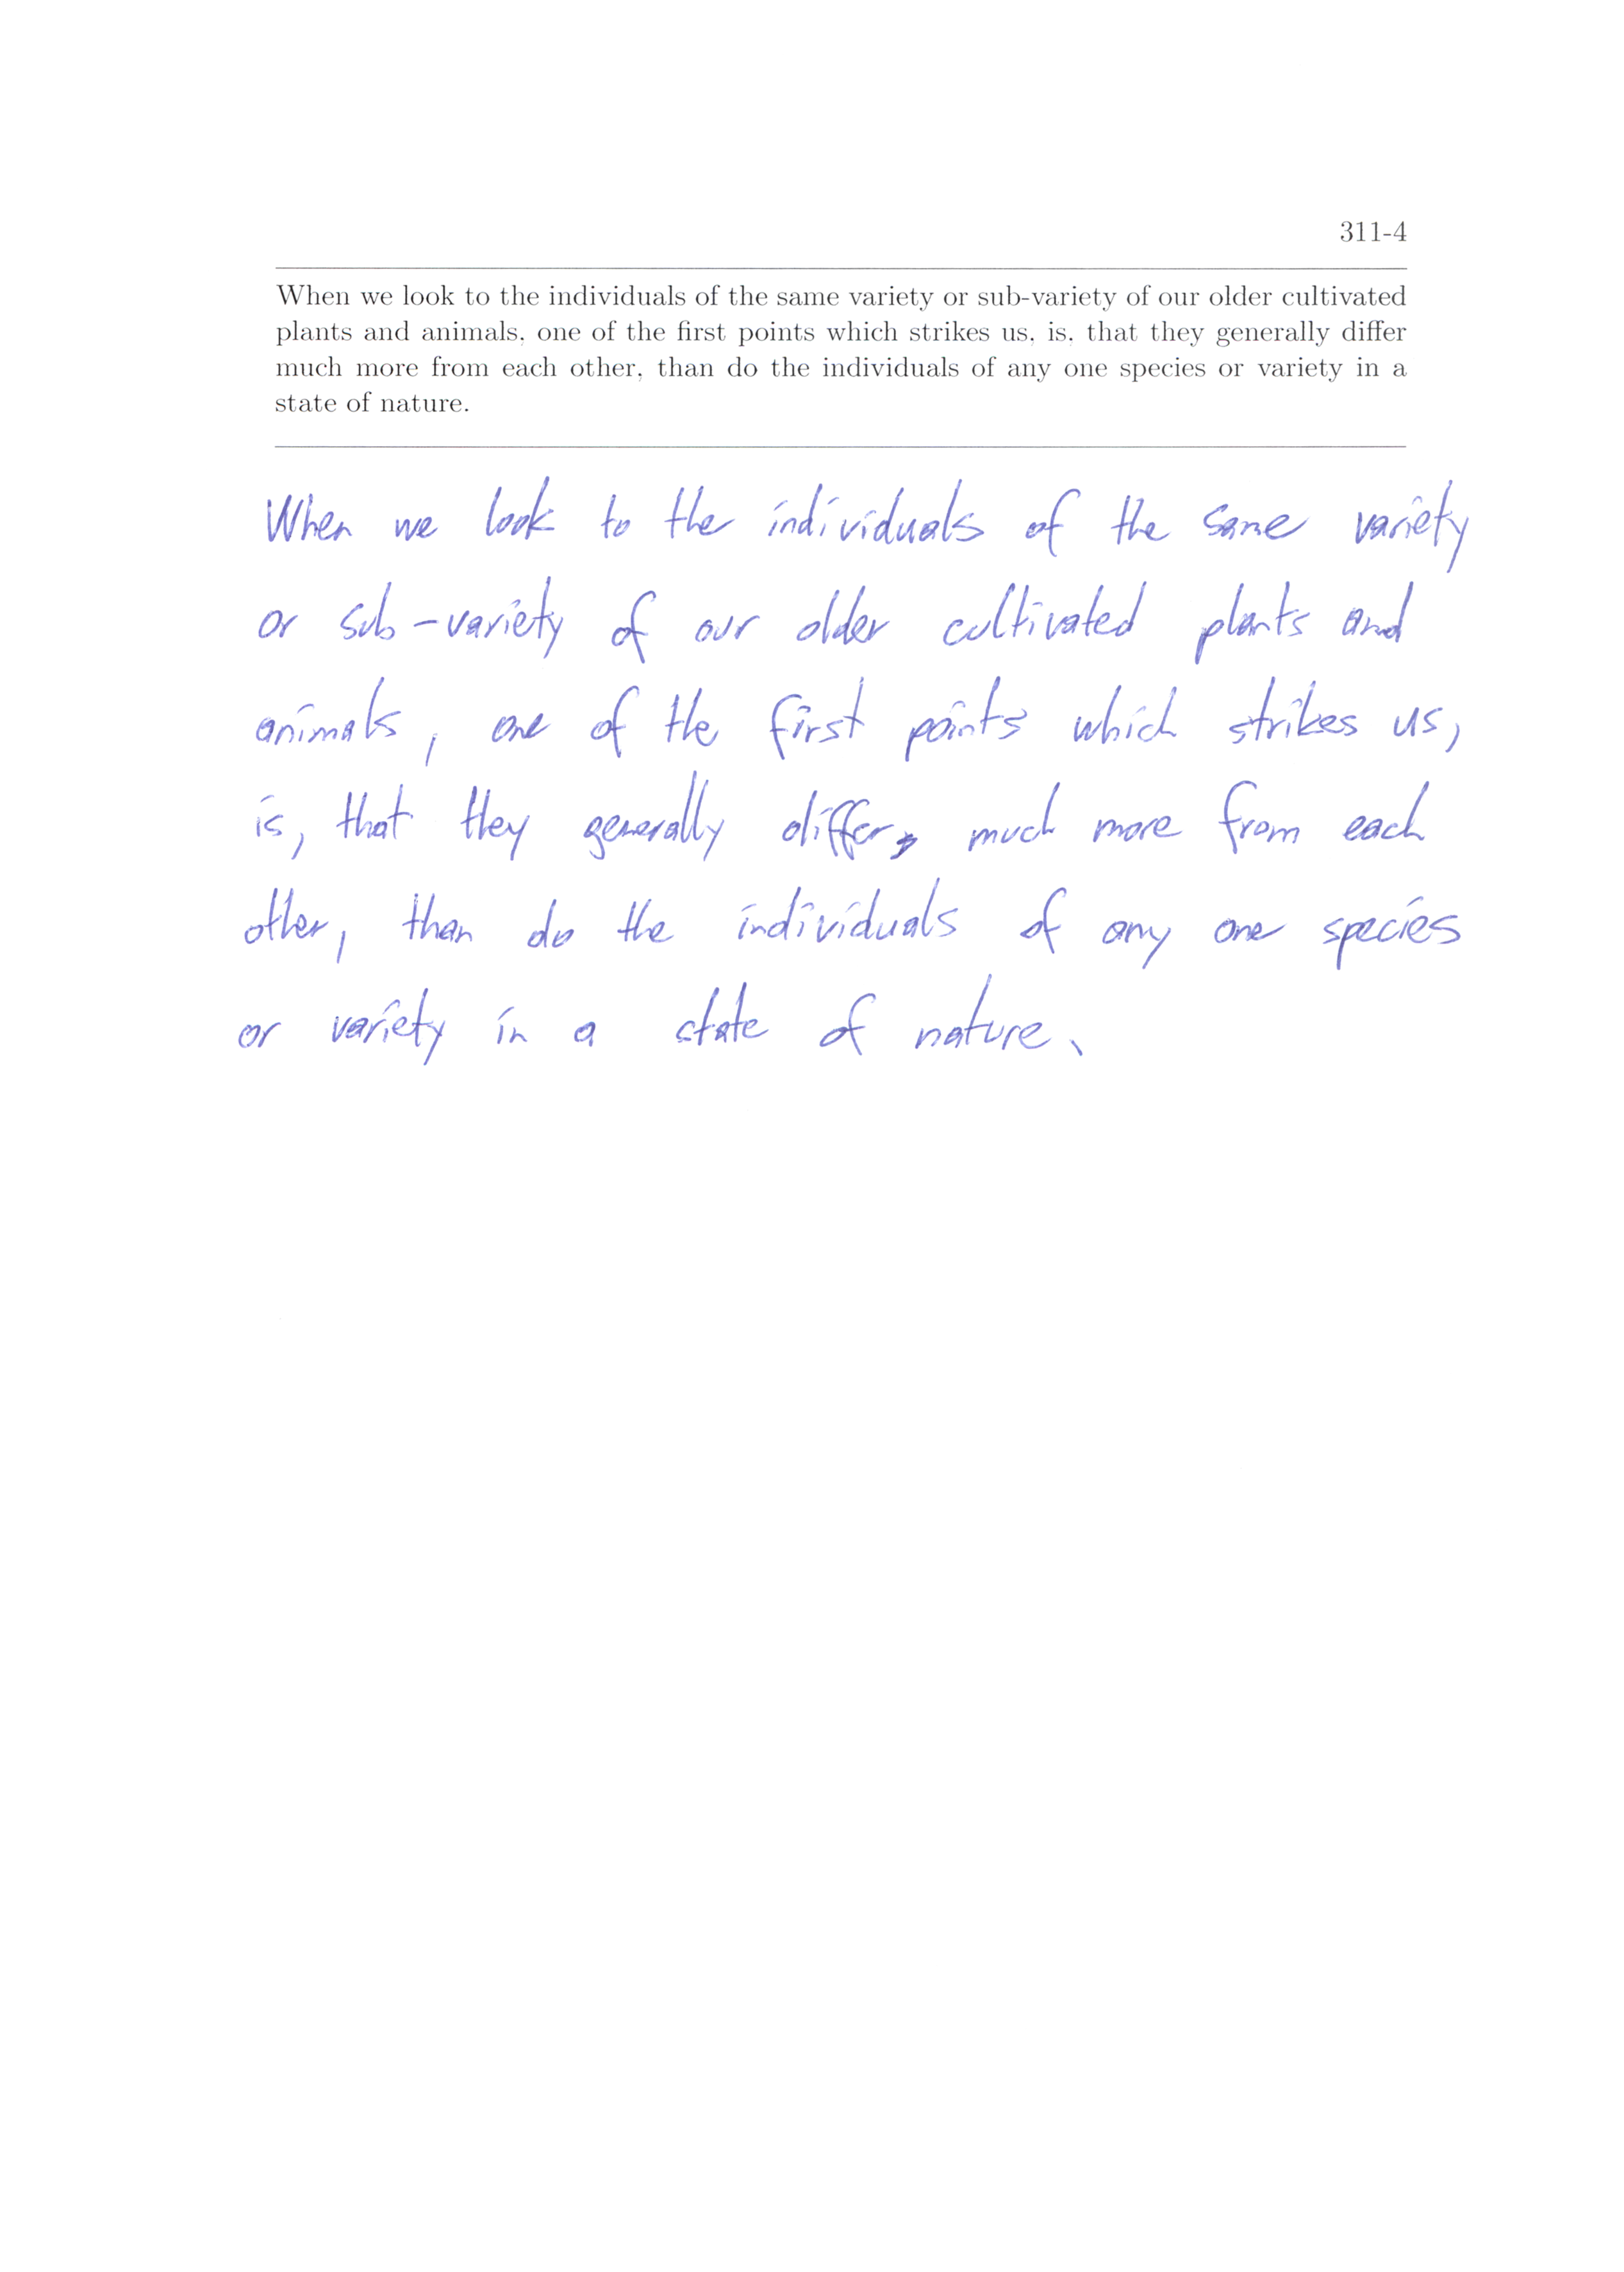 311-4
When we look to the individuals of the same variety or sub-variety of our older cultivated
plants and animals, one of the first points which strikes us, is, that they generally differ
much more from each other, than do the individuals of any one species or variety in a
state of nature.
When we look to the individuals of the same variety
or sub-variety of our older cultivated plants and
animals, one of the first points which strikes us,
is, that they generally differ, much more from each
other, than do the individuals of any one species
or variety in a state of nature.